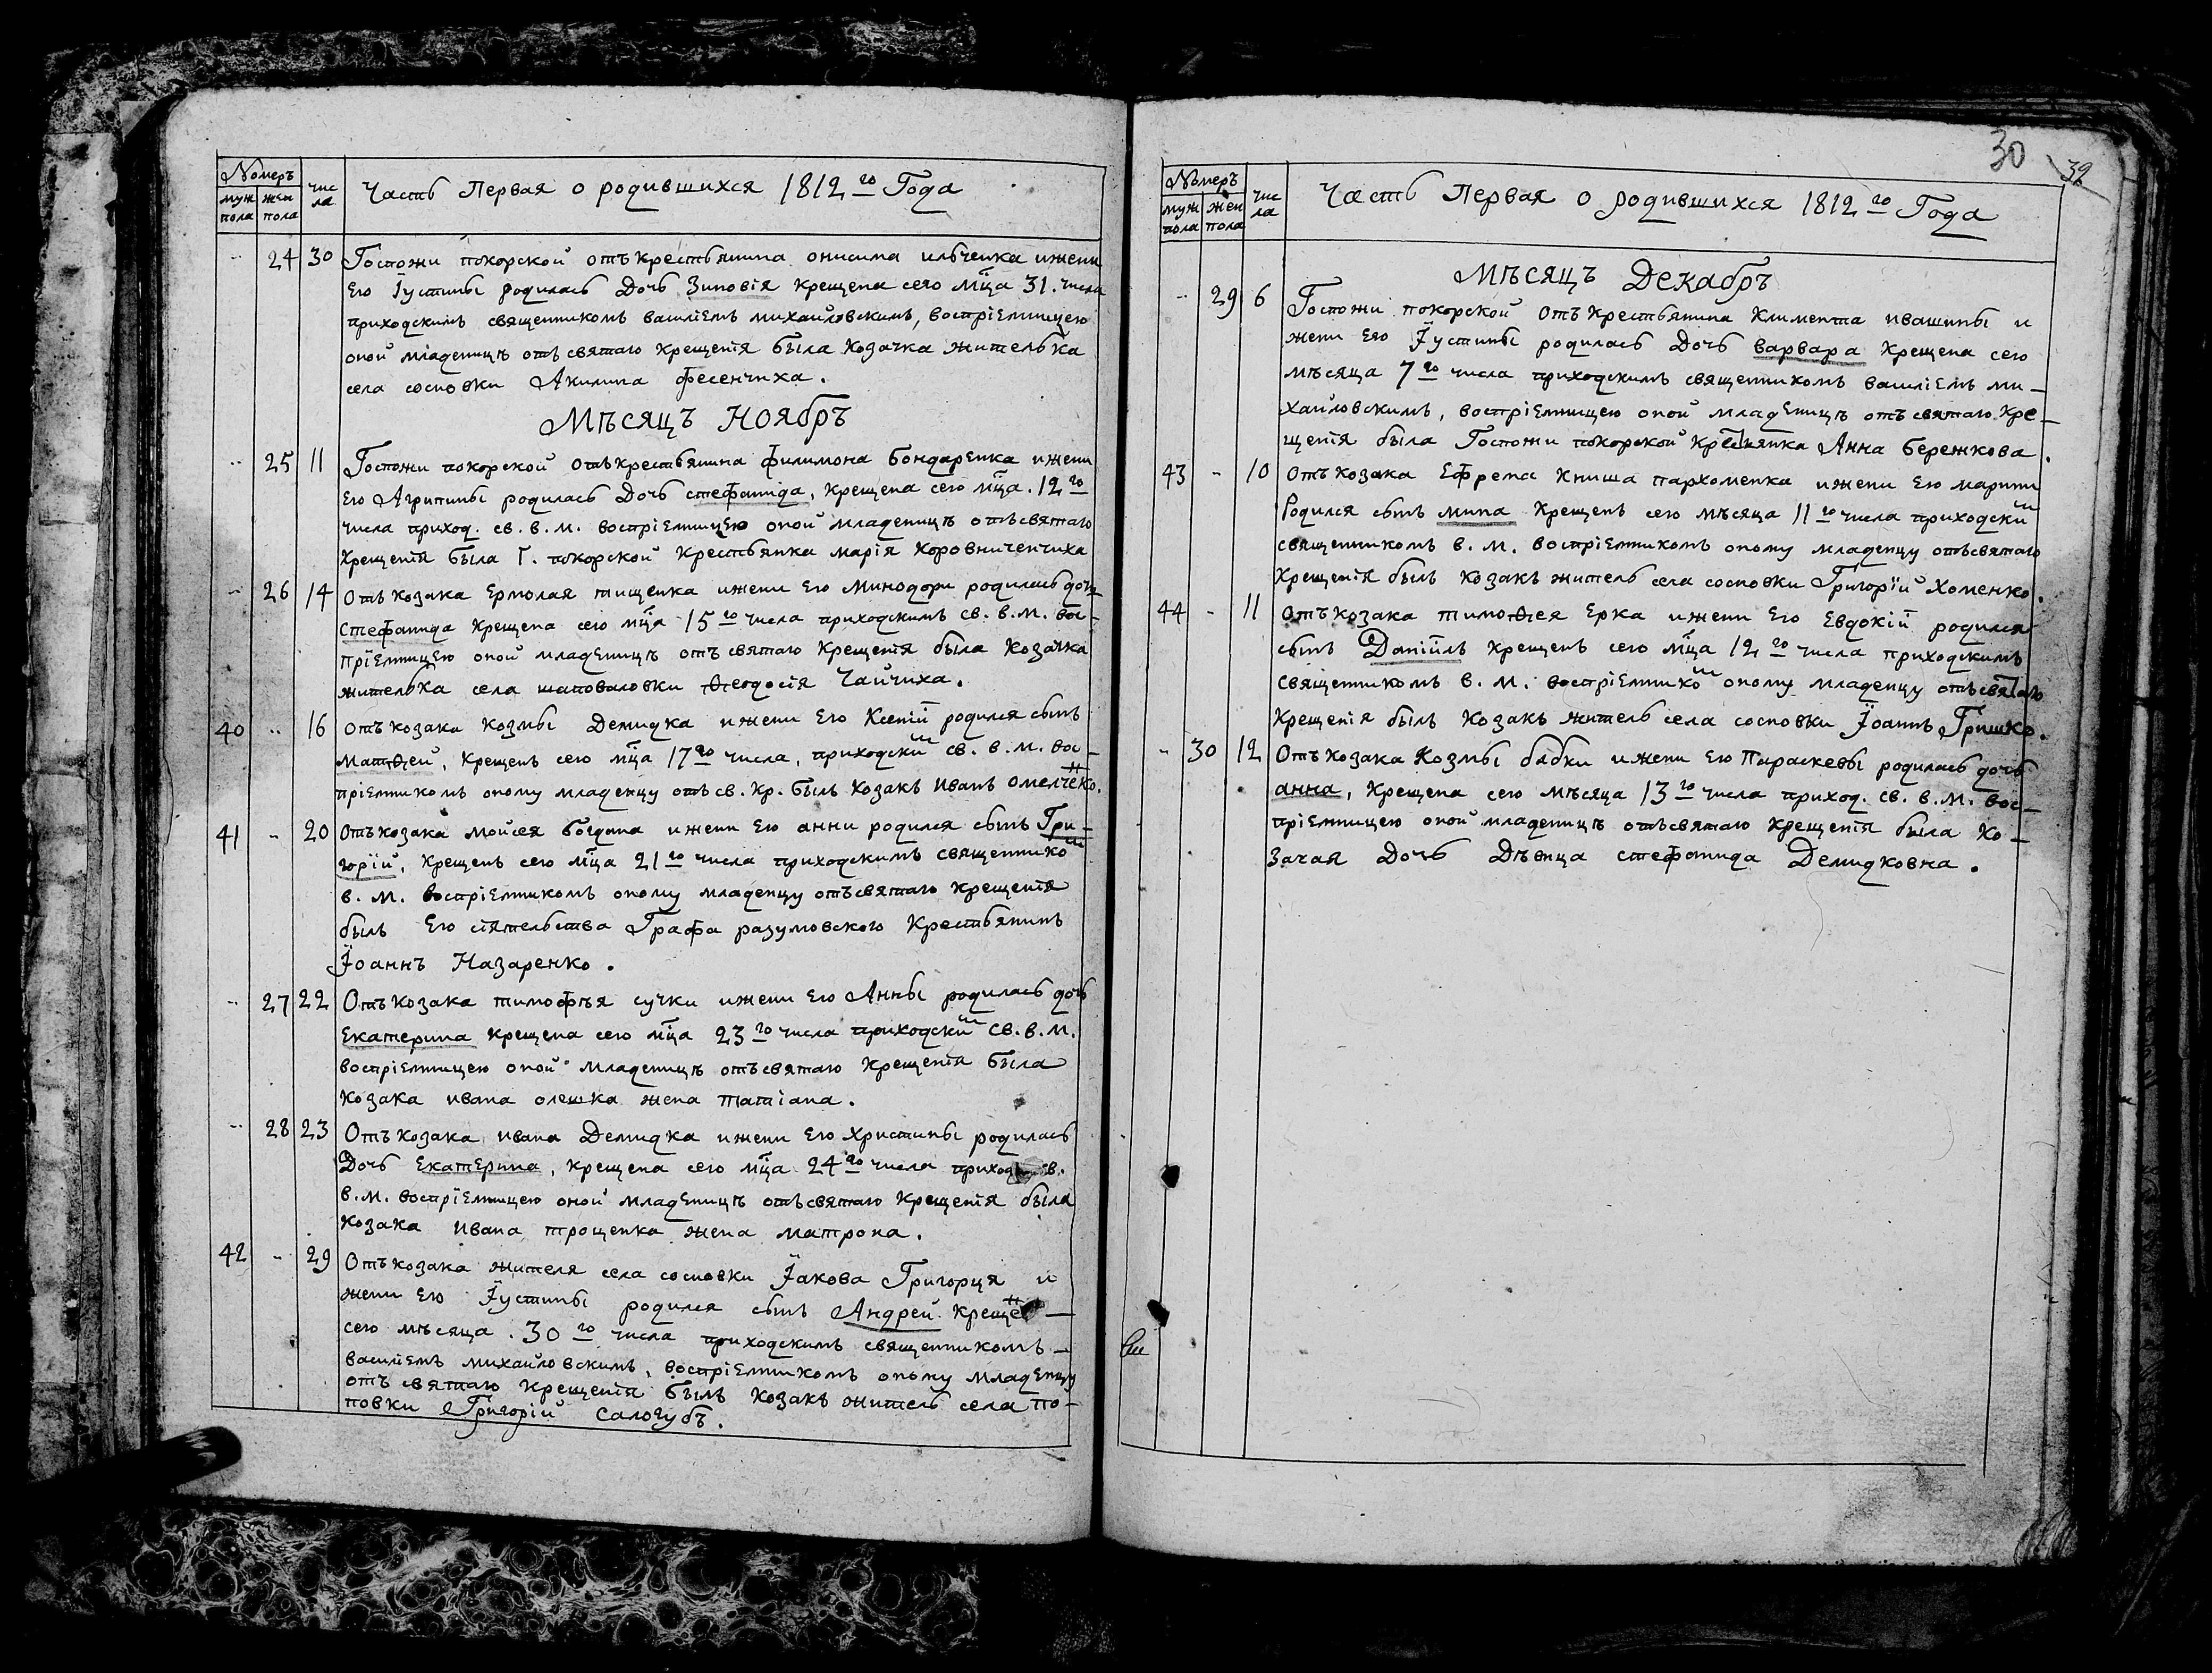 Номеръ
муж пола
жен пола
чис ла
Часть Первая о родившихся 1812 го Года
24 30 Госпожи покорской отъ крестьянина онисима ильченка ижени
Его Іустины родилась Дочь Зиновія крещена сего мца 31. числа
приходскимъ священникомъ василіемъ михайловскимъ, воспріемницею
оной младеницѣ отъ святаго крещенія была козачка жителька
села сосновки Акилина фесенчиха.
Мѣсяцъ Ноябръ
25 11 Госпожи покорской отъ крестьянина филимона бондаренка ижени
Его Агрипины родилась Дочь стефанида, крещена сего мца. 12 го
числа приход. св. в. м. воспріемницею оной младеницѣ отъ святаго
крещенія была Г. покорской крестьянка марія коровниченчиха
26 14 Отъ козака Ермолая тищенка ижени Его Минодори родилась дочь
Стефанида крещена сего мца 15 го числа приходскимъ св. в. м. вос-
пріемницею оной младеницѣ отъ святаго крещенія была козачка
жителька села шаповаловки Ѳеодосія Чайчиха.
40 16 Отъ козака козмы Демидка ижени Его Ксеній родился сынъ
Матѳей, крещенъ сего мца 17 го числа, приходским св. в. м. вос-
пріемникомъ оному младенцу отъ св. Кр. былъ козакъ иванъ омелченко.
41 20 Отъ козака мойсея богдана ижени Его анни родился сынъ Гри-
горій, крещенъ сего мца 21 го числа приходскимъ священником
в. м. воспріемникомъ оному младенцу отъ святаго крещенія
былъ Его сіятельства Графа разумовского Крестьянинъ
Іоаннъ Назаренко.
27 22 Отъ козака тимофѣя сучки ижени Его Анны родилась дочь
Екатерина крещена сего мца 23 го числа приходским св. в. м.
воспріемницею оной младеницѣ отъ святаго крещенія была
козака ивана олешка жена татіана.
28 23 Отъ козака ивана Демидка ижени Его христины родилась
Дочь Екатерина, крещена сего мца 24 го числа приход св.
в. м. воспріемницею оной младеницѣ отъ святаго крещенія была
козака ивана троценка жена матрона.
42 29 Отъ козака жителя села сосновки Іакова Григорця и
жени Его Іустины родился сынъ Андрей крещен
сего мѣсяца. 30 го числа приходскимъ священникомъ
василіемъ михайловскимъ, воспріемникомъ оному младенцу
отъ святаго крещенія былъ козакъ житель села по-
повки Григорій Салогубъ.
30
39
Номеръ
муж пола
жен пола
чис ла
Часть Первая о родившихся 1812 го Года
Мѣсяцъ Декабръ
29 6 Госпожи покорской отъ крестьянина климента ивашины и
жени Его Іустины родилась Дочь варвара крещена сего
мѣсяца 7 го числа приходскимъ священникомъ василіемъ ми-
хайловскимъ, воспріемницею оной младеницѣ отъ святаго кре-
щенія была Госпожи покорской крестянка Анна бережкова.
43 10 Отъ козака Ефрема книша пархоменка ижени Его марини
Родился сынъ мина крещенъ сего мѣсяца 11 го числа приходским
священникомъ в. м. воспріемникомъ оному младенцу отъ святаго
крещенія былъ козакъ житель села сосновки Григорій Хоменко.
44 11 Отъ козака тимоѳея Ерка ижени Его Евдокій родился
сынъ Даніилъ крещенъ сего мца 12 го числа приходскимъ
священникомъ в. м. воспріемником оному младенцу отъ святаго
крещенія былъ козакъ житель села сосновки Іоаннъ Гришко.
30 12 Отъ козака козмы бабки ижени Его Параскевы родилась дочь
анна, крещена сего мѣсяца 13 го числа приход. св. в. м. вос-
пріемницею оной младеницѣ отъ святаго крещенія была ко-
зачая Дочь Дѣвица стефанида Демидковна.